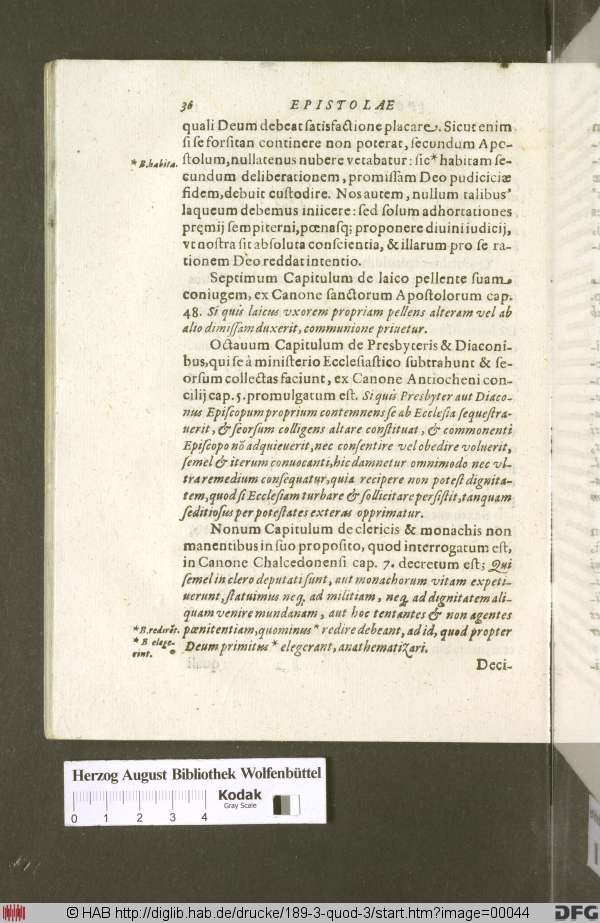 36 EPISTOLAE
quali Deum debeat satisfactione placare. Sicut enim
si se forsitan continere non poterat, secundum Apo-
stolum, nullatenus nubere vetabatur: sic* habitam se-
* B. habita.
cundum deliberationem, promissam Deo pudiciciæ
fidem, debuit custodire. Nos autem, nullum talibus
laqueum debemus iniicere: sed solum adhortationes
pręmij sempiterni, pœnasq; proponere diuini iudicij,
vt nostra sit absoluta conscientia, & illarum pro se ra-
tionem Deo reddat intentio.
Septimum Capitulum de laico pellente suam
coniugem, ex Canone sanctorum Apostolorum cap.
48. Si quis laicus vxorem propriam pellens alteram vel ab
alio dimissam duxerit, communione priuetur.
Octauum Capitulum de Presbyteris & Diaconi-
bus, qui se à ministerio Ecclesiastico subtrahunt & se-
orsum collectas faciunt, ex Canone Antiocheni con-
cilij cap. 5. promulgatum est. Si quis Presbyter aut Diaco-
nus Episcopum proprium contemnens se ab Ecclesia sequestra-
uerit, & seorsum colligens altare constituat, & commonenti
Episcopo nō adquieuerit, nec consentire vel obedire voluerit,
semel & iterum conuocanti, hic damnetur omnimodo nec vl-
tra remedium consequatur, quia recipere non potest dignita-
tem, quod si Ecclesiam turbare & sollicitare persistit, tanquam
seditiosus per potestates exteras opprimatur.
Nonum Capitulum de clericis & monachis non
manentibus in suo proposito, quod interrogatum est,
in Canone Chalcedonensi cap. 7. decretum est; Qui
semel in clero deputati sunt, aut monachorum vitam expeti-
uerunt, statuimus neq, ad militiam, neq, ad dignitatem ali-
quam venire mundanam, aut hoc tentantes & non agentes
* B. redirēt. pœnitentiam, quominus* redire debeant, ad id, quod propter
* B elege-
rint.
Deum primitus* elegerant, anathematizari.
Deci-
Herzog August Bibliothek Wolfenbüttel
0 1 2 3 4
Kodak
Gray Scale
© HAB http://diglib.hab.de/drucke/189-3-quod-3/start.htm?image=00044
DFG